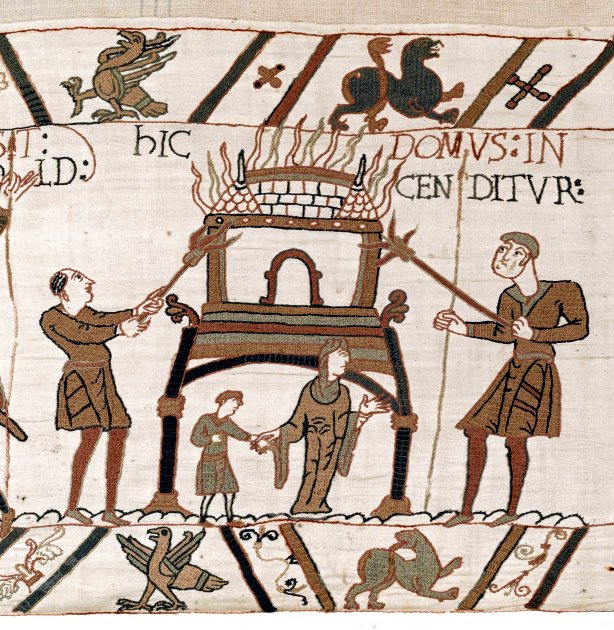 IT:
LD:
hIC DOMVS: IN
CEN DITVR: